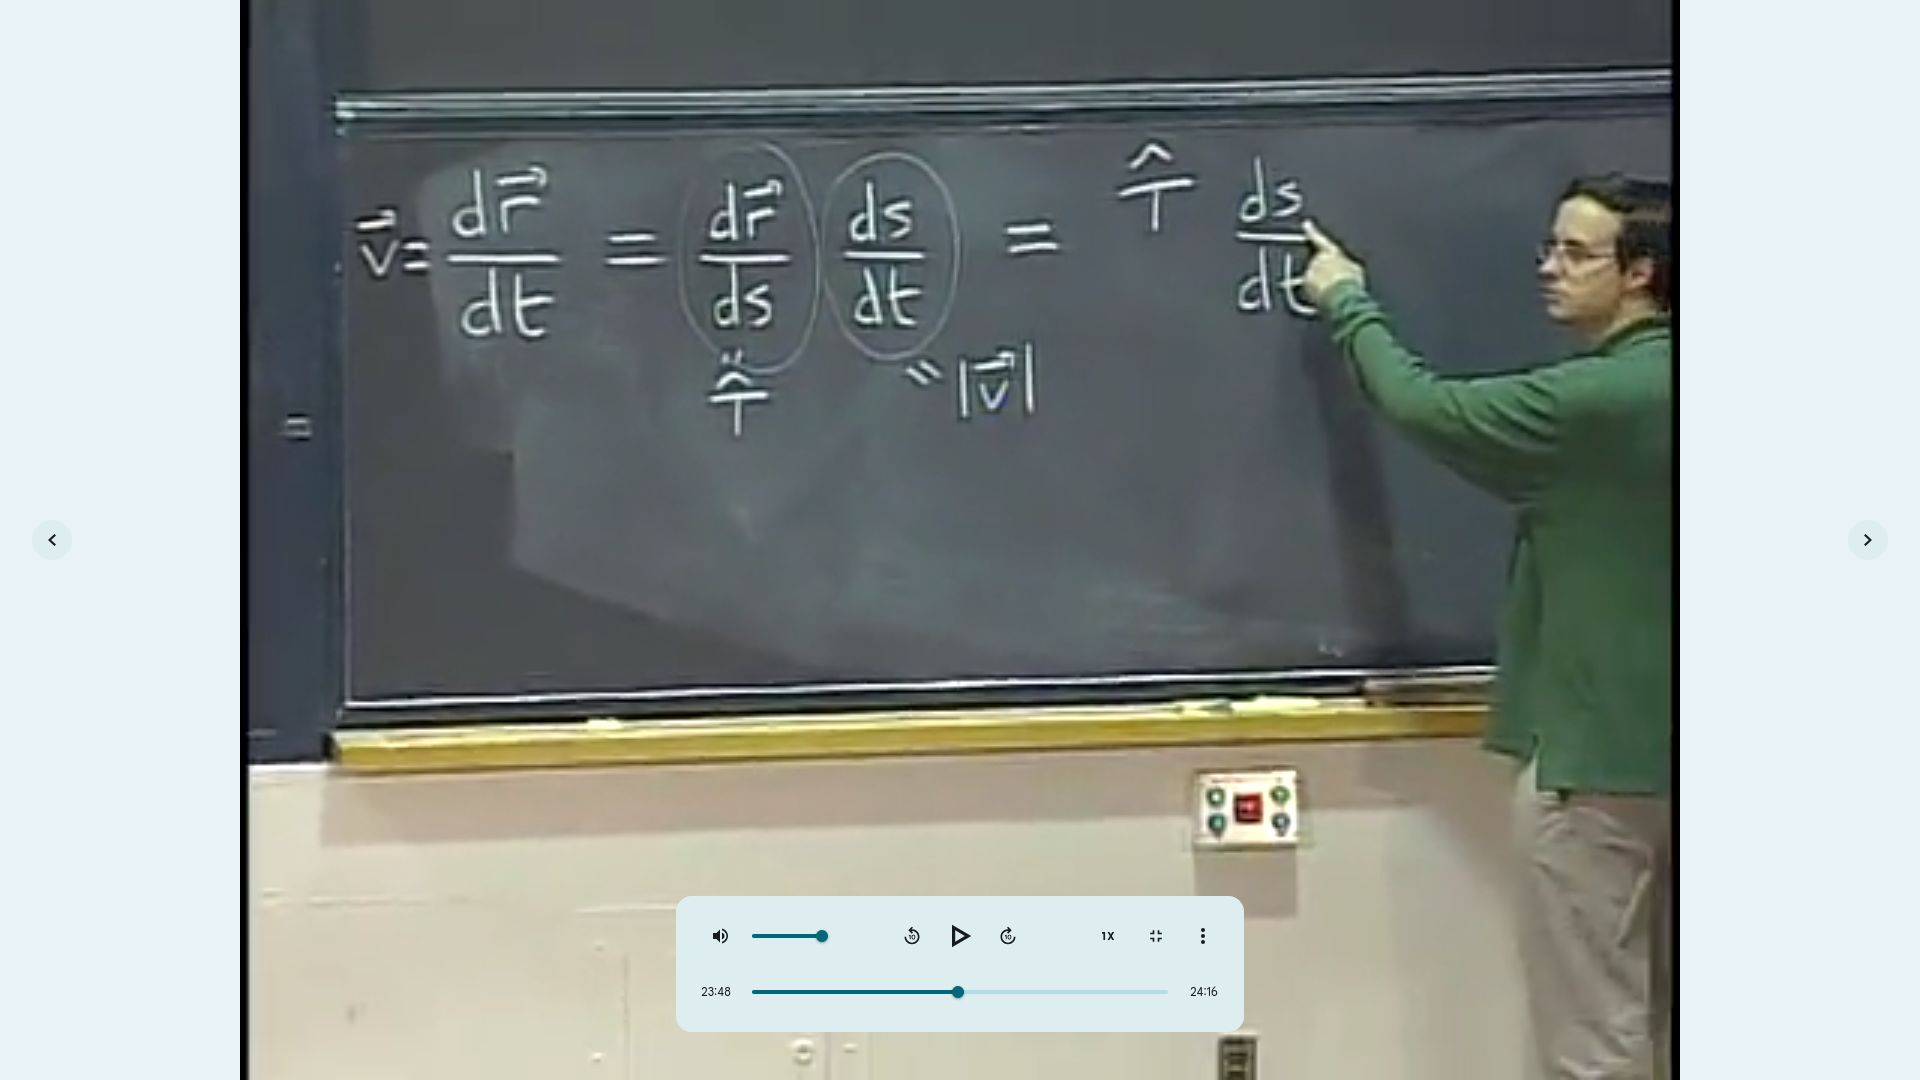 v⃗ = dr⃗/dt = dr⃗/ds ds/dt = T̂ ds/dt
= T̂ = |v⃗|
10 10 1X
23:48 24:16